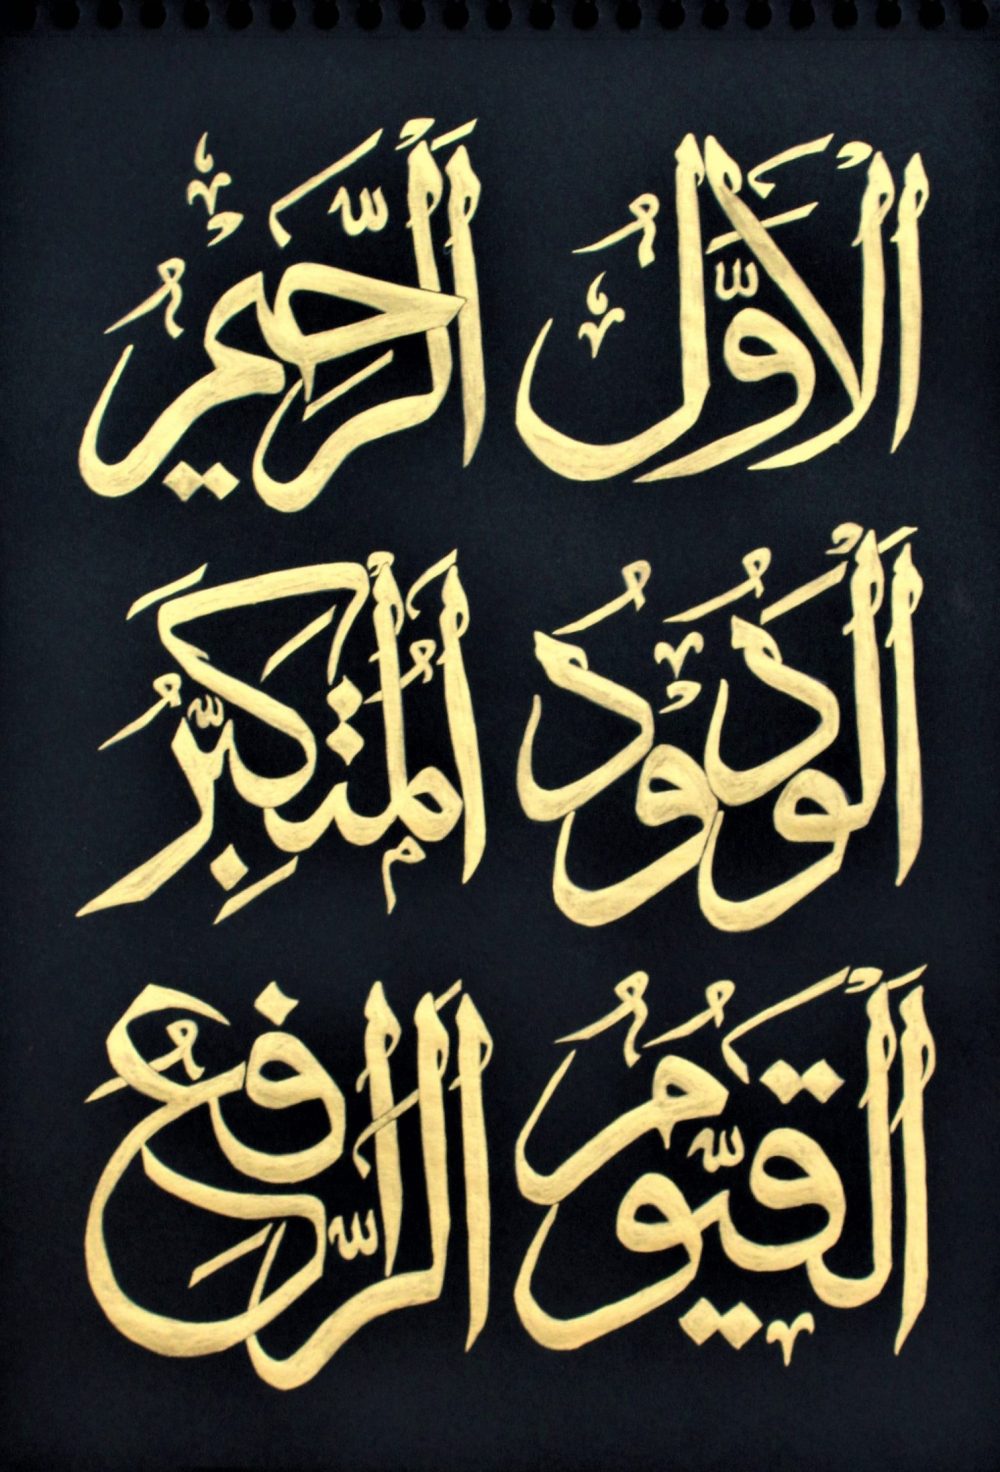 اَلْاَوَّلُ اَلرَّحِيْمُ
اَلْوَدُوْدُ اَلْمُتَكَبِّرُ
اَلْقَيُّوْمُ اَلرَّافِعُ